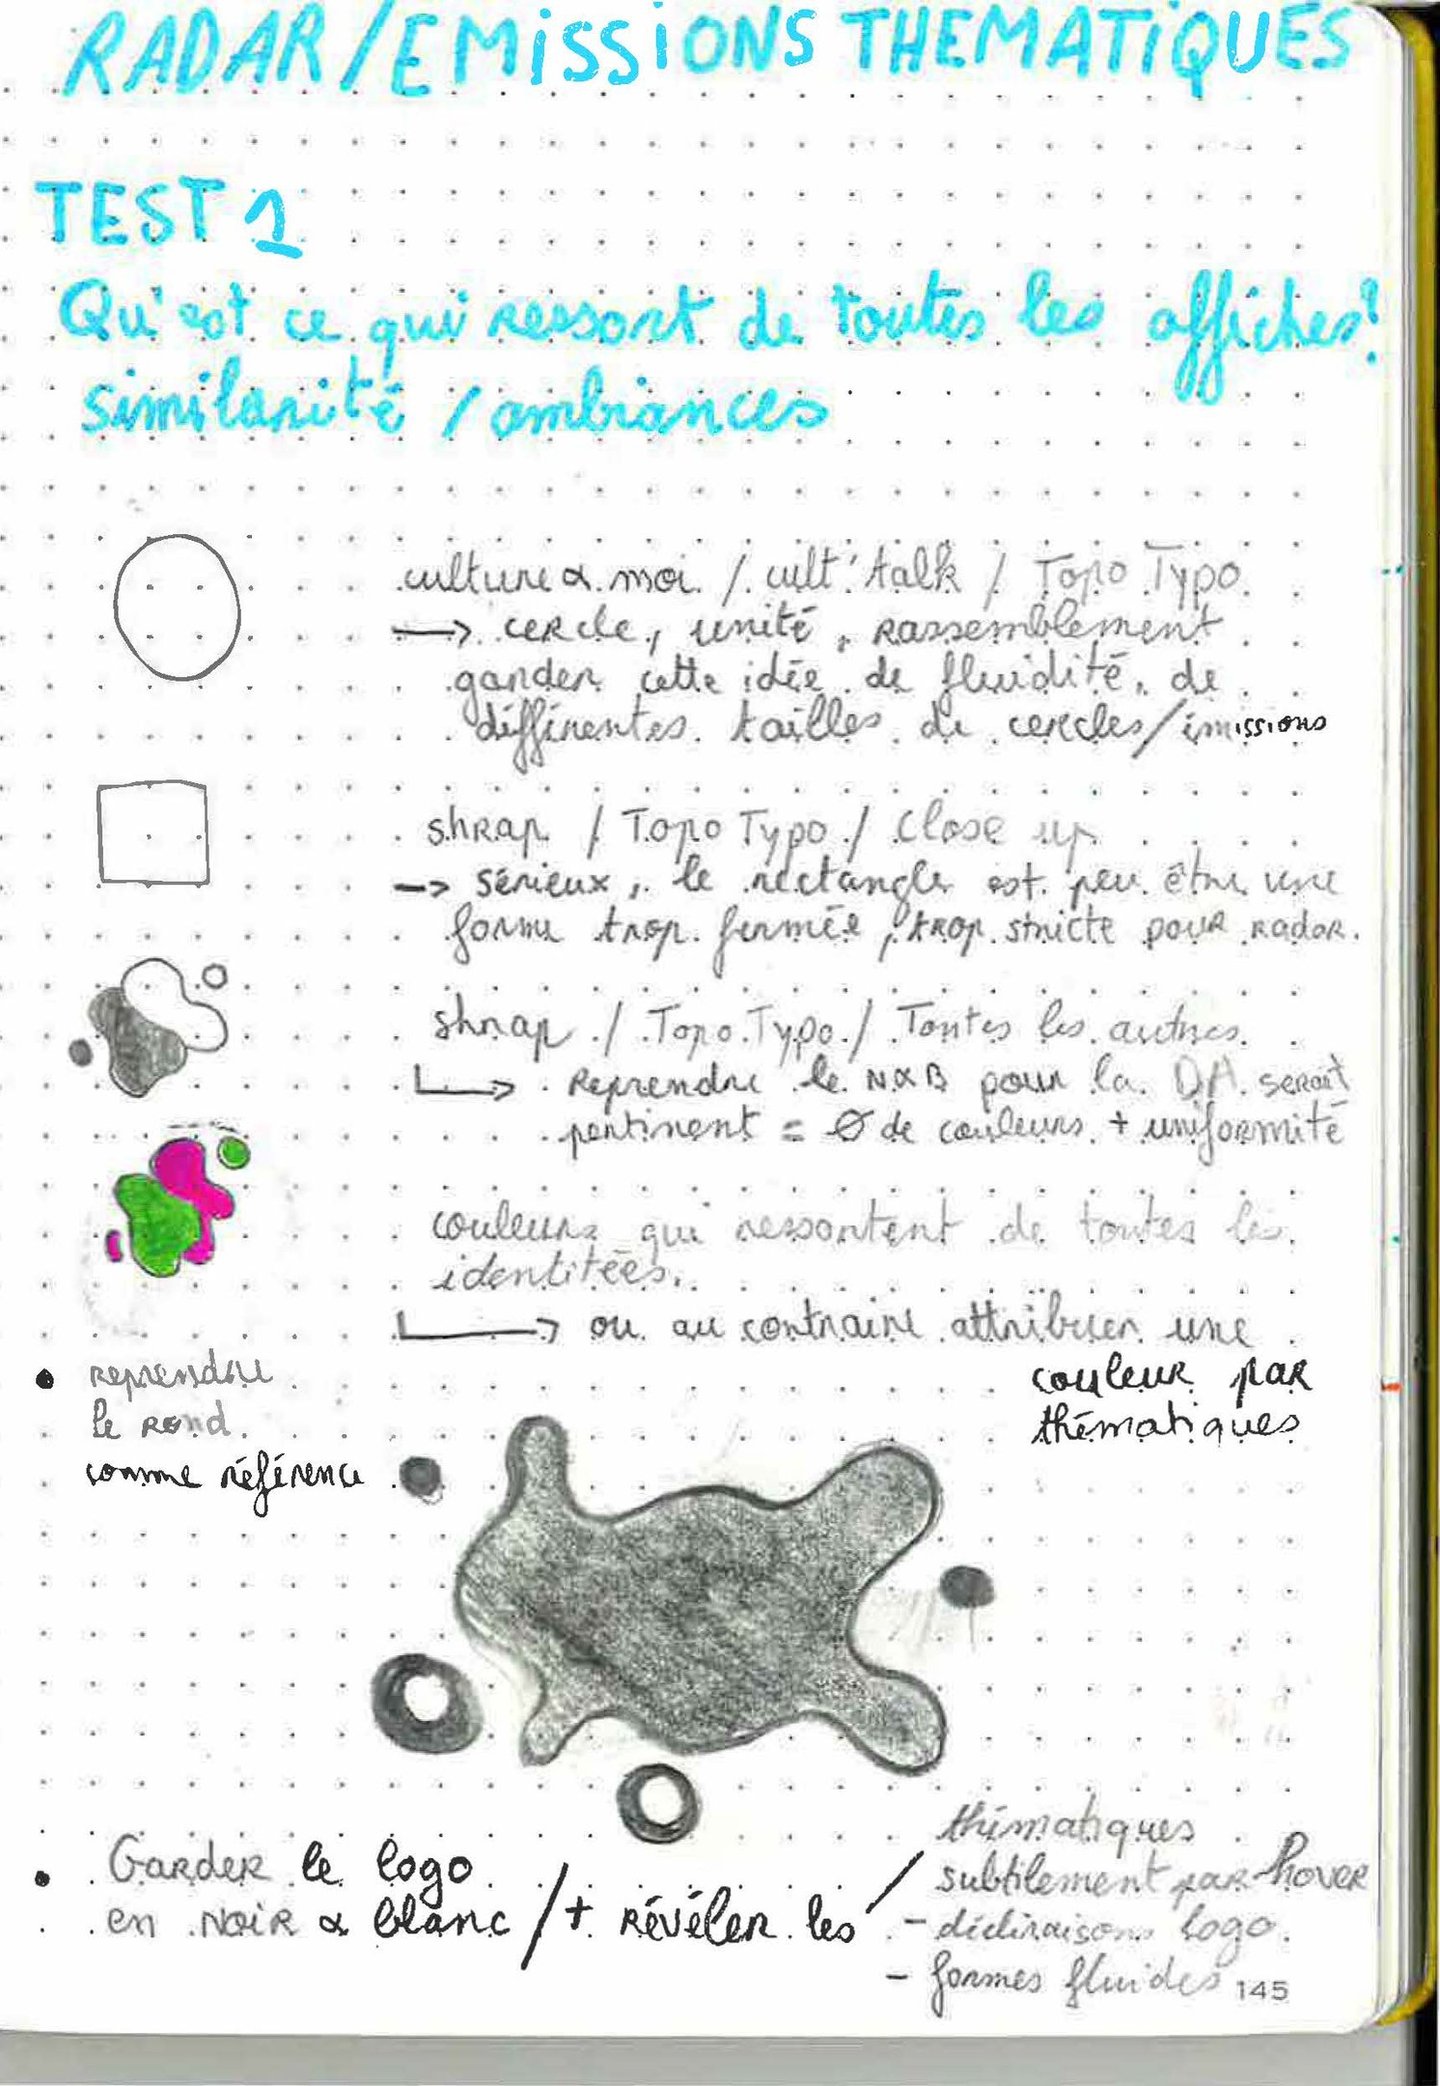 RADAR/EMiSSiONS THEMATiQUES
TEST 1
Qu'est ce qui ressort de toutes les affiches?
similarité / ambiances
culture & moi / cult'talk / Topo Typo
→ cercle, unité, rassemblement
garder cette idée de fluidité, de
différentes tailles de cercles/émissions
shrap / Topo Typo / Close up
→ sérieux, le rectangle est peu être une
forme trop fermée, trop stricte pour radar.
shrap / Topo Typo / Toutes les autres
→ Reprendre le N&B pour la DA serait
pertinent = Ø de couleurs + uniformité
couleurs qui ressortent de toutes les
identitées.
→ ou au contraire attribuer une
couleur par
thématiques
• reprendre
le rond
comme référence
• Garder le logo
en noir & blanc / + révéler les /
thématiques
subtilement par hover
- déclinaisons logo
- formes fluides
145